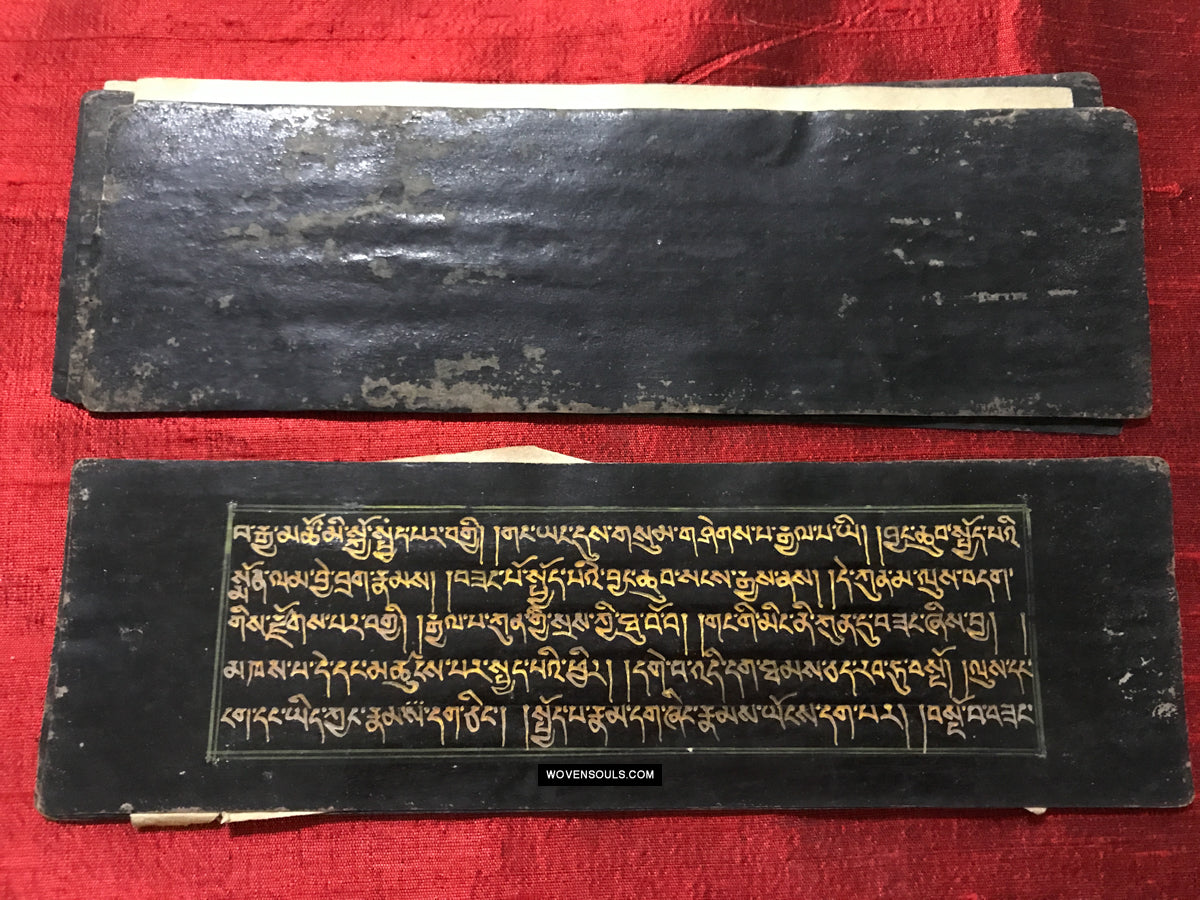 པ་རྒྱ་མཚོ་མི་སྐྱོ་སྤྱད་པར་བགྱི། །གང་ཡང་དུས་གསུམ་གཤེགས་པ་རྒྱལ་པ་ཡི། །བྱང་ཆུབ་སྤྱོད་པའི་
སྨོན་ལམ་བྱེ་བྲག་རྣམས། །བཟང་པོ་སྤྱོད་པའི་བྱང་ཆུབ་སངས་རྒྱས་ནས། །དེ་ཀུན་མ་ལུས་བདག་
གིས་རྫོགས་པར་བགྱི། །རྒྱལ་པ་ཀུན་གྱི་སྲས་ཀྱི་ཐུ་བོ་བ། །གང་གི་མིང་ནི་ཀུན་དུ་བཟང་ཞེས་བྱ། །
མཁས་པ་དེ་དང་མཚུངས་པར་སྤྱད་པའི་ཕྱིར། །དགེ་བ་འདི་དག་ཐམས་ཅད་རབ་ཏུ་བསྔོ། །ལུས་དང་
ངག་དང་ཡིད་ཀྱང་རྣམས་དག་ཅིང་། །སྤྱོད་པ་རྣམ་དག་ཞིང་རྣམས་ཡོངས་དག་པར། །བསྔོ་བ་བཟང་
WOVENSOULS.COM